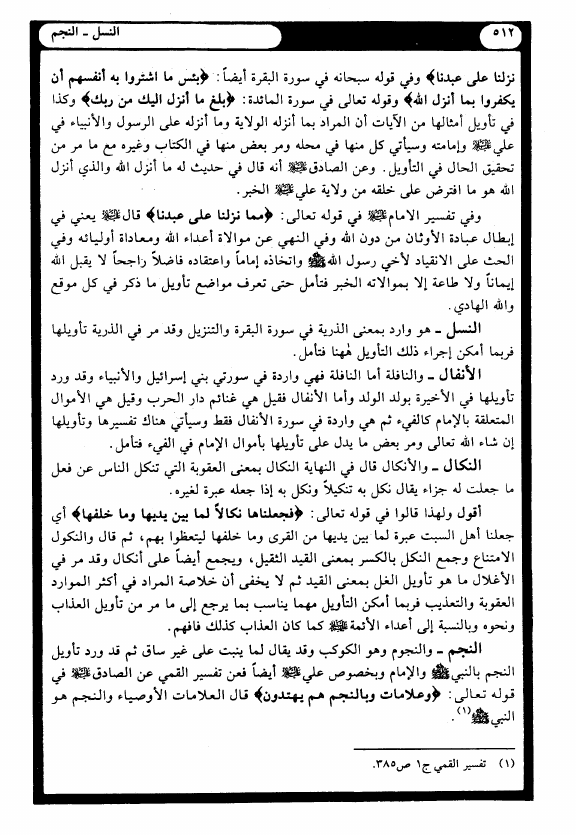 ٥١٢
النسل ـ النجم
نزلنا على عبدنا﴾ وفي قوله سبحانه في سورة البقرة أيضاً: ﴿بئس ما اشتروا به أنفسهم أن
يكفروا بما أنزل الله﴾ وقوله تعالى في سورة المائدة: ﴿بلغ ما أنزل اليك من ربك﴾ وكذا
في تأويل أمثالها من الآيات أن المراد بما أنزله الولاية وما أنزله على الرسول والأنبياء في
علي عليه السلام وإمامته وسيأتي كل منها في محله ومر بعض منها في الكتاب وغيره مع ما مر من
تحقيق الحال في التأويل. وعن الصادق عليه السلام أنه قال في حديث له ما أنزل الله والذي أنزل
الله هو ما افترض على خلقه من ولاية علي عليه السلام الخبر.
وفي تفسير الامام عليه السلام في قوله تعالى: ﴿مما نزلنا على عبدنا﴾ قال عليه السلام يعني في
إبطال عبادة الأوثان من دون الله وفي النهي عن موالاة أعداء الله ومعاداة أوليائه وفي
الحث على الانقياد لأخي رسول الله ﷺ واتخاذه إماماً واعتقاده فاضلاً راجحاً لا يقبل الله
إيماناً ولا طاعة إلا بموالاته الخبر فتأمل حتى تعرف مواضع تأويل ما ذكر في كل موقع
والله الهادي.
النسل ـ هو وارد بمعنى الذرية في سورة البقرة والتنزيل وقد مر في الذرية تأويلها
فربما أمكن إجراء ذلك التأويل هٰهنا فتأمل.
الأنفال ـ والنافلة أما النافلة فهي واردة في سورتي بني إسرائيل والأنبياء وقد ورد
تأويلها في الأخيرة بولد الولد وأما الأنفال فقيل هي غنائم دار الحرب وقيل هي الأموال
المتعلقة بالإمام كالفيء ثم هي واردة في سورة الأنفال فقط وسيأتي هناك تفسيرها وتأويلها
إن شاء الله تعالى ومر بعض ما يدل على تأويلها بأموال الإمام في الفيء فتأمل.
النكال ـ والأنكال قال في النهاية النكال بمعنى العقوبة التي تنكل الناس عن فعل
ما جعلت له جزاء يقال نكل به تنكيلاً ونكل به إذا جعله عبرة لغيره.
أقول ولهذا قالوا في قوله تعالى: ﴿فجعلناها نكالاً لما بين يديها وما خلفها﴾ أي
جعلنا أهل السبت عبرة لما بين يديها من القرى وما خلفها ليتعظوا بهم، ثم قال والنكول
الامتناع وجمع النكل بالكسر بمعنى القيد الثقيل، ويجمع أيضاً على أنكال وقد مر في
الأغلال ما هو تأويل الغل بمعنى القيد ثم لا يخفى أن خلاصة المراد في أكثر الموارد
العقوبة والتعذيب فربما أمكن التأويل مهما يناسب بما يرجع إلى ما مر من تأويل العذاب
ونحوه وبالنسبة إلى أعداء الأئمة عليهم السلام كما كان العذاب كذلك فافهم.
النجم ـ والنجوم وهو الكوكب وقد يقال لما ينبت على غير ساق ثم قد ورد تأويل
النجم بالنبي ﷺ والإمام وبخصوص علي عليه السلام أيضاً فعن تفسير القمي عن الصادق عليه السلام في
قوله تعالى: ﴿وعلامات وبالنجم هم يهتدون﴾ قال العلامات الأوصياء والنجم هو
النبي ﷺ(١).
(١) تفسير القمي ج١ ص٣٨٥.